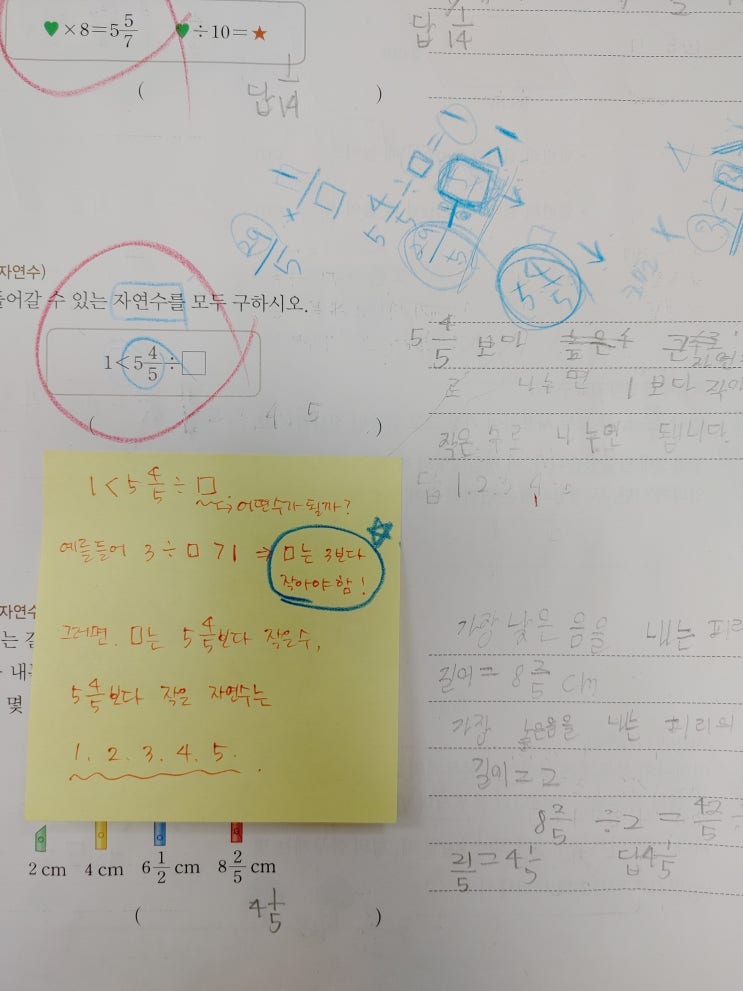 ♥×8=5 5/7 ♥÷10=★
( 답 1/14 )
답 1/14
29/5 × 1/□
5 4/5 ÷ □ = 1
5 4/5
자연수)
들어갈 수 있는 자연수를 모두 구하시오.
1<5 4/5÷□
( 4. 5 )
5 4/5 보다
로 나누면 1 보다 작아
작은 수로 나누면 됩니다.
답 1. 2. 3. 4
1 < 5 4/5 ÷ □ → 어떤수가 될까?
예를들어 3 ÷ □ > 1 ⇒ □는 3보다
작아야 함!
그러면. □는 5 4/5보다 작은수,
5 4/5보다 작은 자연수는
1. 2. 3. 4. 5.
자연수
는
내
몇
2 cm 4 cm 6 1/2 cm 8 2/5 cm
( 4 1/5 )
가장 낮은 음을 내는 피리
길이 = 8 2/5 cm
가장 높은음을 내는 피리의
길이 = 2
8 2/5 ÷ 2 = 42/5 ÷
21/5 = 4 1/5 답 4 1/5